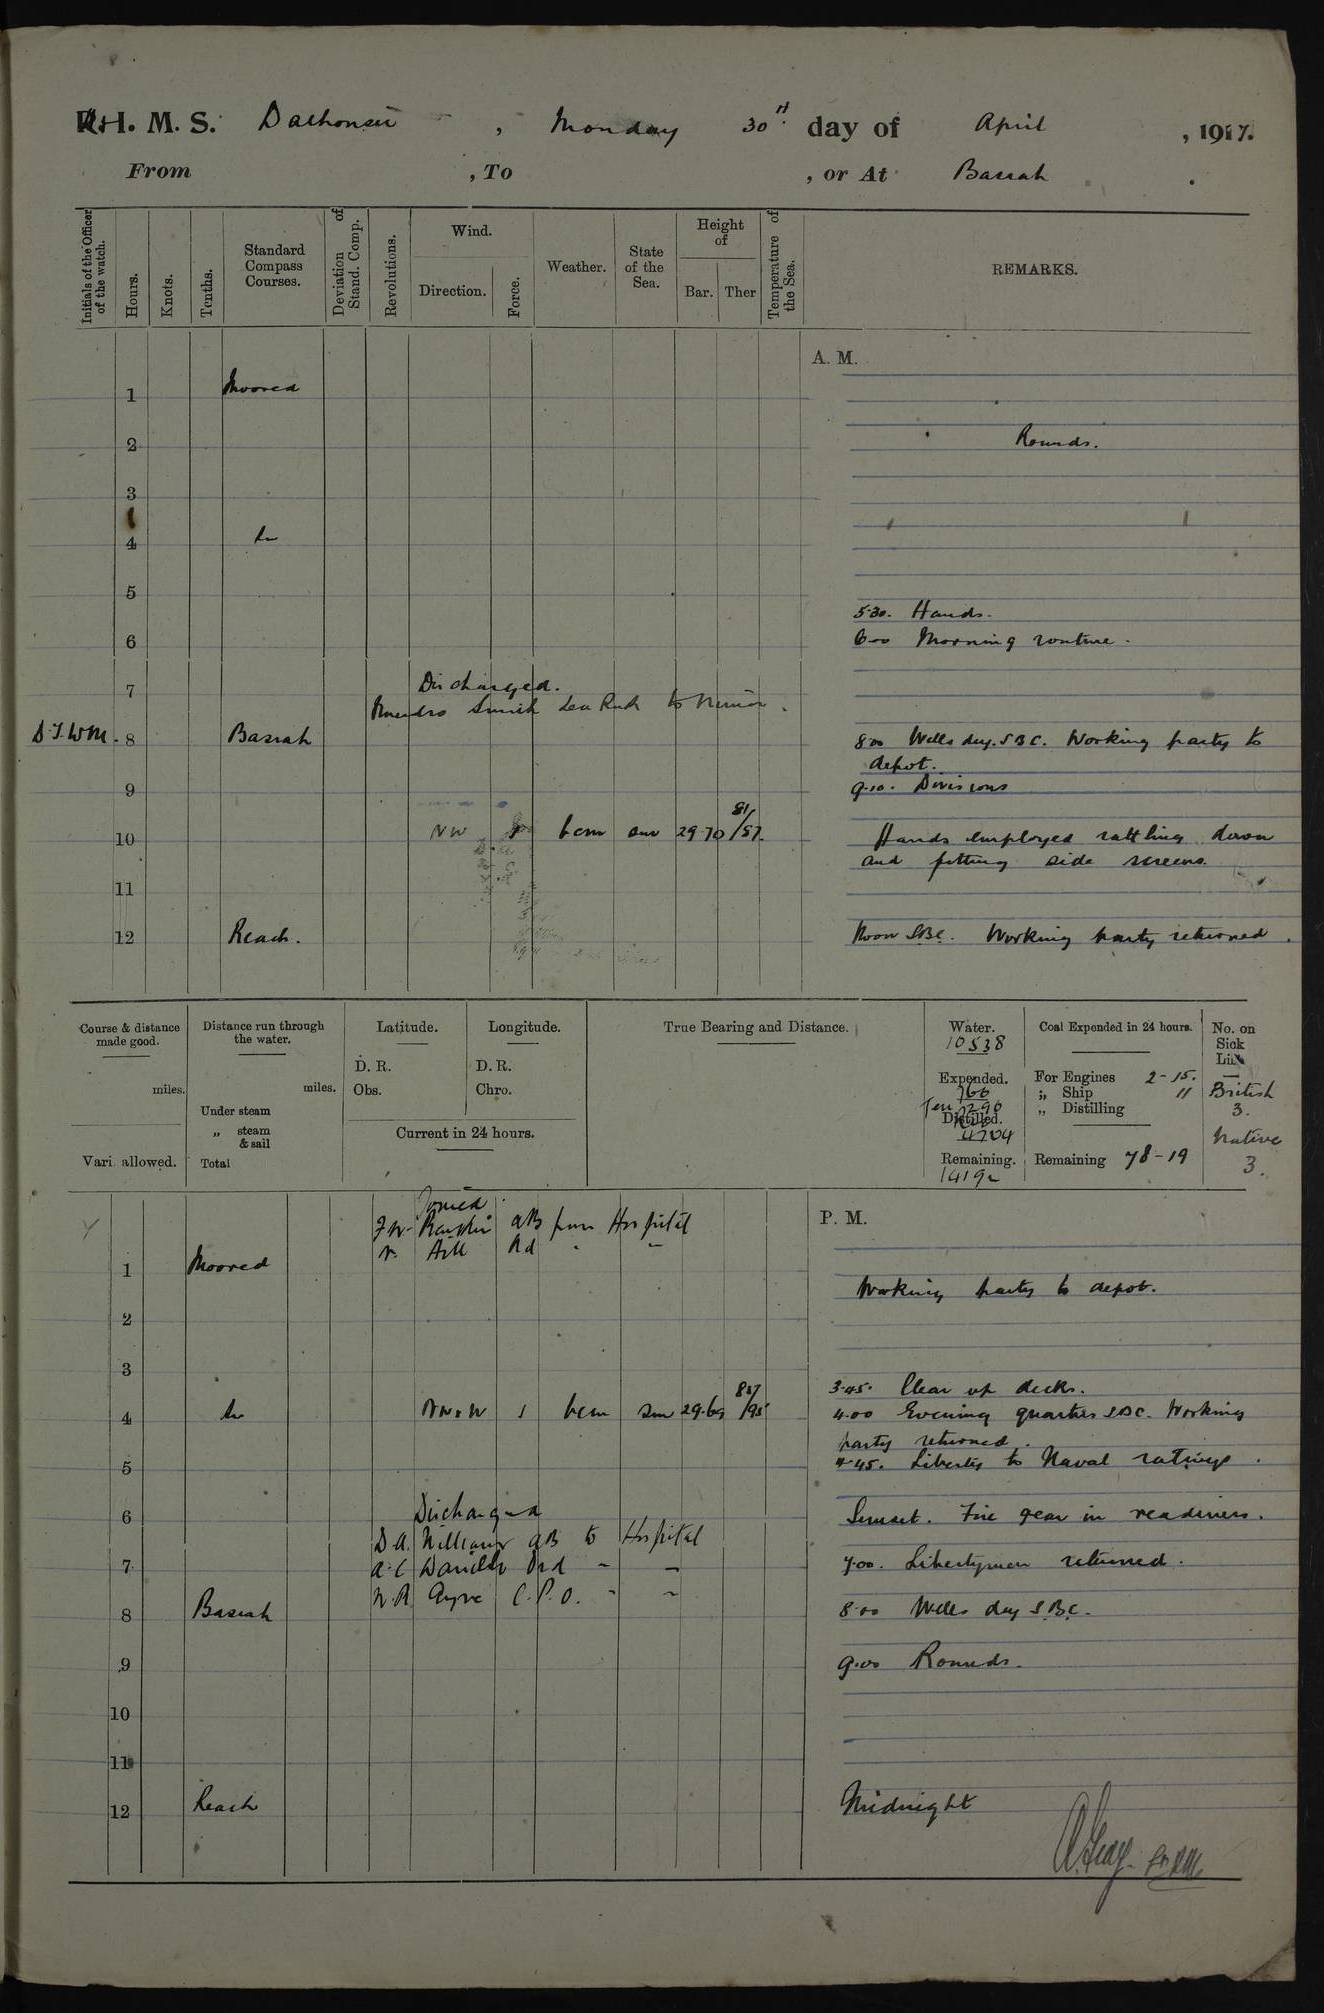 H. M. S. Dalhousie, Monday 30th day of April, 1917.
From , To , or At Basrah
Initials of the Officer of the watch.
Hours.
Knots.
Tenths.
Standard Compass Courses.
Deviation of Stand. Comp.
Revolutions.
Wind.
Direction.
Force.
Weather.
State of the Sea.
Height of
Bar.
Ther
Temperature of the Sea.
REMARKS.
A. M.
1 Moored
2 Rounds.
3
4
5
5.30. Hands.
6 6.00 Morning routine.
7 Discharged.
to
D.I.W.M. 8 Basrah 8.00 Wells day. S.B.C. Working party to
depot.
9 9.10. Divisions
81
10 NW 1 bcm sm 29.70 /87. Hands employed rattling down
and fitting side screens.
11
12 Reach. Noon S.B.C. Working party returned.
Course & distance made good.
miles.
Vari. allowed.
Distance run through the water.
miles.
Under steam
„ steam & sail
Total
Latitude.
D. R.
Obs.
Longitude.
D. R.
Chro.
Current in 24 hours.
True Bearing and Distance.
Water.
10538
Expended.
766
Distilled.
Remaining.
Coal Expended in 24 hours.
For Engines 2-15.
„ Ship 11
„ Distilling
Remaining 78-19
No. on Sick List
British
3.
Native
3.
P. M.
Joined
F.W. AB from Hospital
Hill
1 Moored
Working party to depot.
2
3
3.45. Clear up decks.
4 1 bcm sm 29.69 /95 4.00 Evening quarters S.B.C. Working
party returned.
5 4.45. Liberty to Naval ratings.
6 Discharged Sunset. Fire gear in readiness.
D.A. Williams AB to Hospital
7 A.C. Ord " " 7.00. Libertymen returned.
W.R. C.P.O. " "
8 Basrah 8.00 Wells day S.B.C.
9 9.00 Rounds.
10
11
12 Reach Midnight